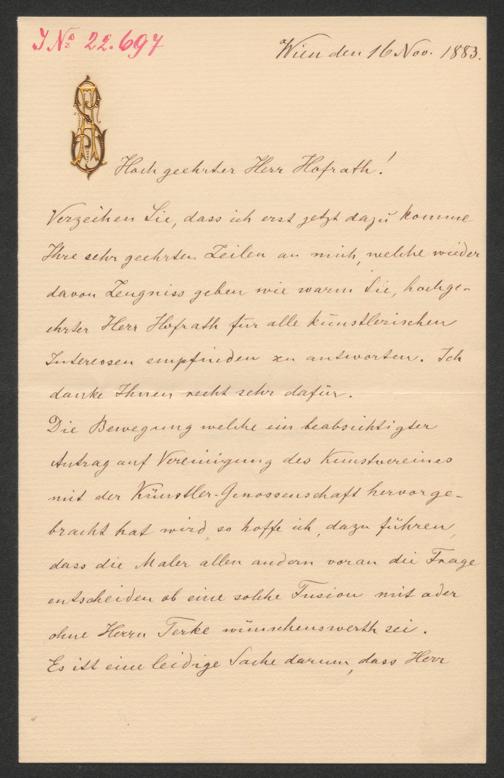 J No 22.697
Wien den 16 Nov. 1883.
Hochgeehrter Herr Hofrath!
Verzeihen Sie, dass ich erst jetzt dazu komme
Ihre sehr geehrten Zeilen an mich, welche wieder
davon Zeugniss geben wie warm Sie, hochge-
ehrter Herr Hofrath für alle künstlerischen
Interessen empfinden zu antworten. Ich
danke Ihnen recht sehr dafür.
Die Bewegung welche ein beabsichtigter
Antrag auf Vereinigung des Kunstvereines
mit der Künstler-Genossenschaft hervorge-
bracht hat wird, so hoffe ich, dazu führen,
dass die Maler allen andern voran die Frage
entscheiden ob eine solche Fusion mit oder
ohne Herrn Terke wünschenswerth sei.
Es ist eine leidige Sache darum, dass Herr